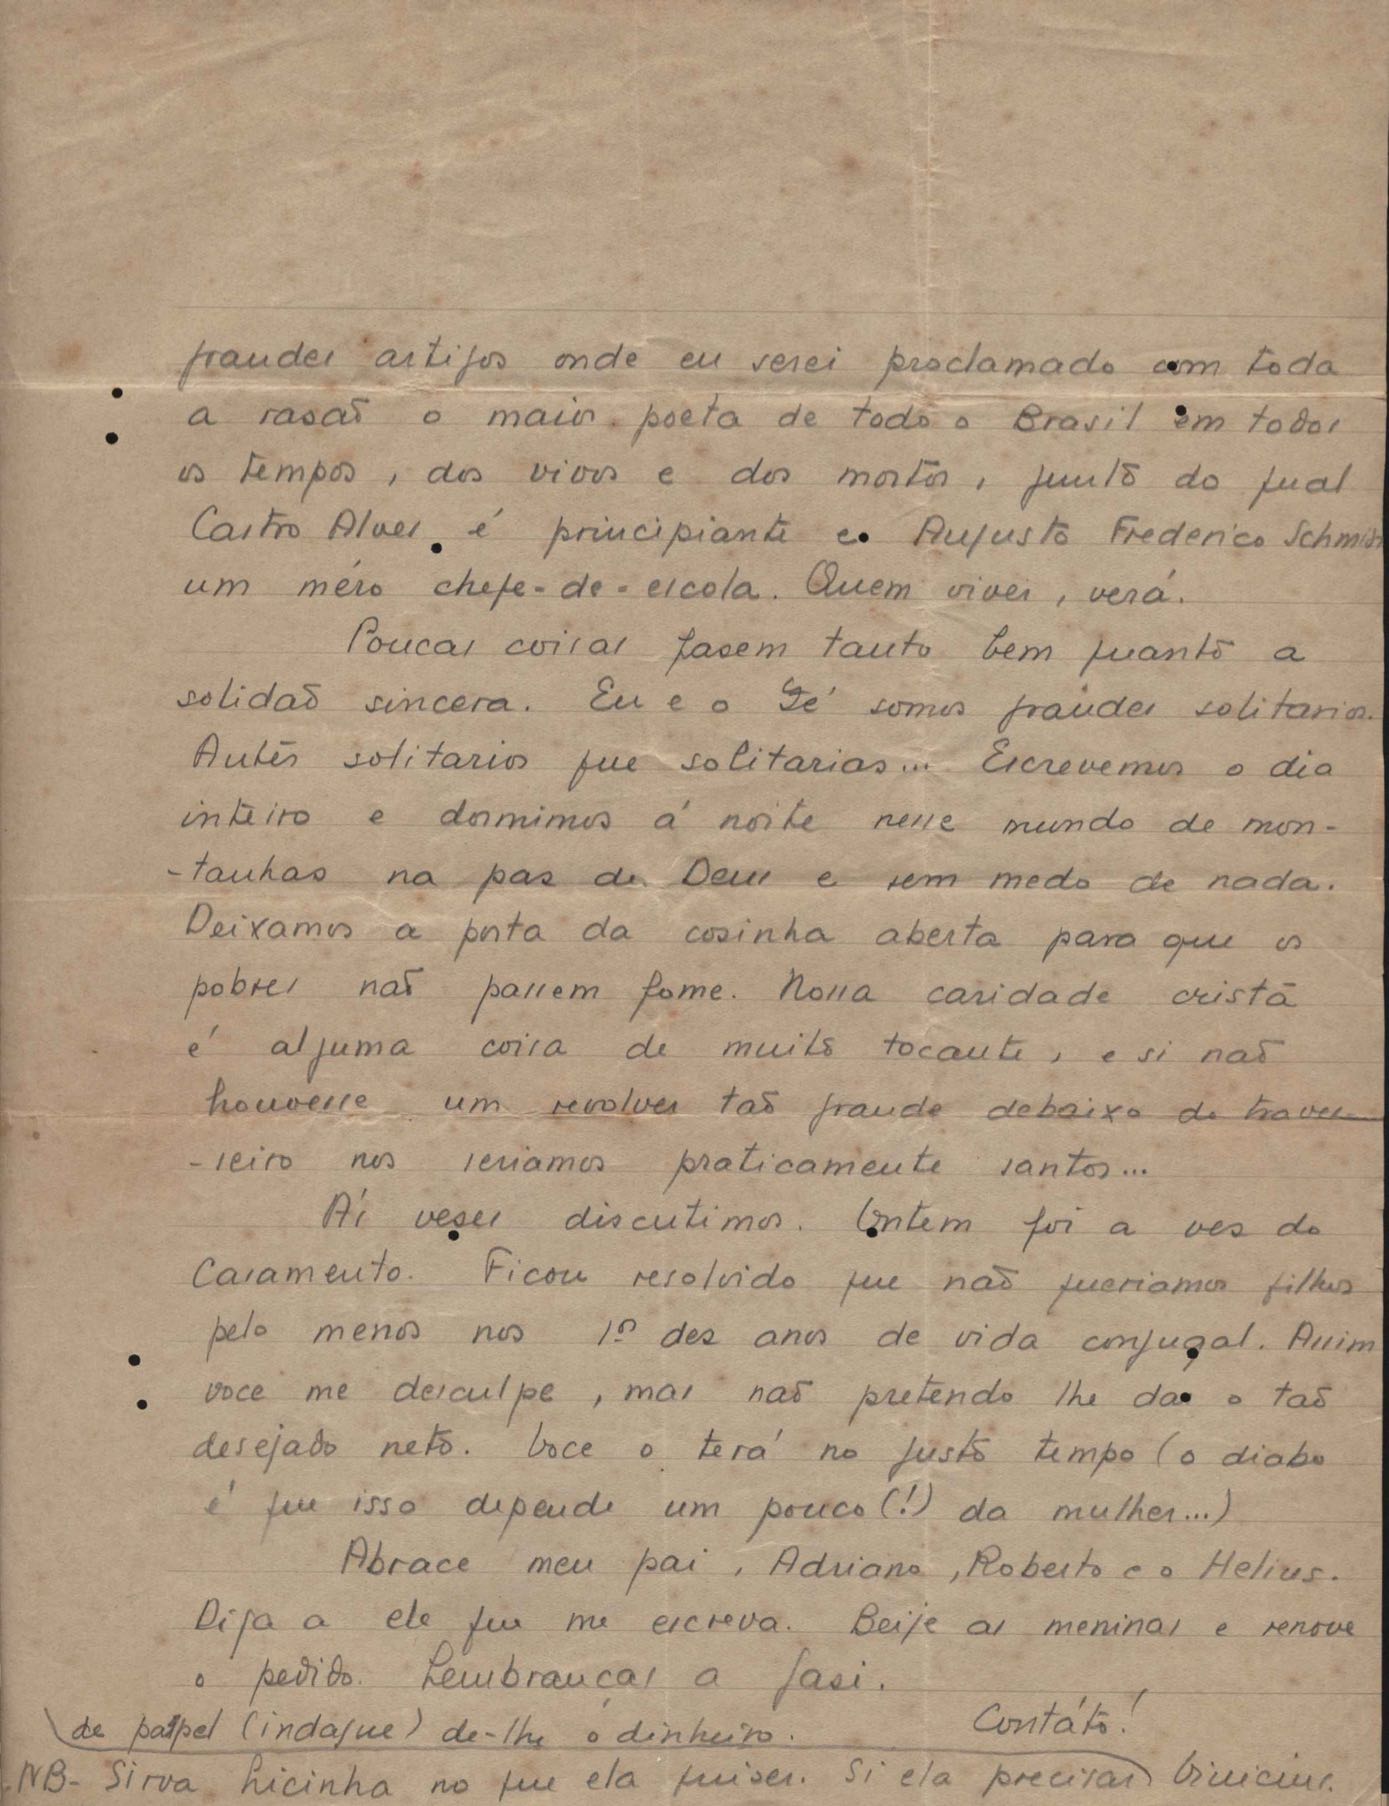 grandes artigos onde eu serei proclamado com toda
a rasaõ o maior poeta de todo o Brasil em todos
os tempos, dos vivos e dos mortos, junto do qual
Castro Alves é principiante e Augusto Frederico Schmidt
um méro chefe-de-escola. Quem viver, verá.
Poucas coisas fasem tanto bem quanto a
solidaõ sincera. Eu e o Zé somos grandes solitarios.
Antes solitarios que solitarias... Escrevemos o dia
inteiro e dormimos á noite nesse mundo de mon-
-tanhas na pas de Deus e sem medo de nada.
Deixamos a porta da cosinha aberta para que os
pobres naõ passem fome. Nossa caridade cristã
é alguma coisa de muito tocante, e si naõ
houvesse um revolver taõ grande debaixo do traves-
-seiro nos seriamos praticamente santos...
Ás veses discutimos. Ontem foi a ves do
Casamento. Ficou resolvido que naõ queriamos filhos
pelo menos nos 1os des anos de vida conjugal. Assim
voce me desculpe, mas naõ pretendo lhe dar o taõ
desejado neto. Voce o terá no justo tempo (o diabo
é que isso depende um pouco (!) da mulher...)
Abrace meu pai, Adriano, Roberto e o Helius.
Diga a ele que me escreva. Beije as meninas e renove
o pedido. Lembranças a
Contáto!
Vinicius.
NB- Sirva Licinha no que ela quiser. Si ela precisar
de papel (indague) de-lhe o dinheiro.